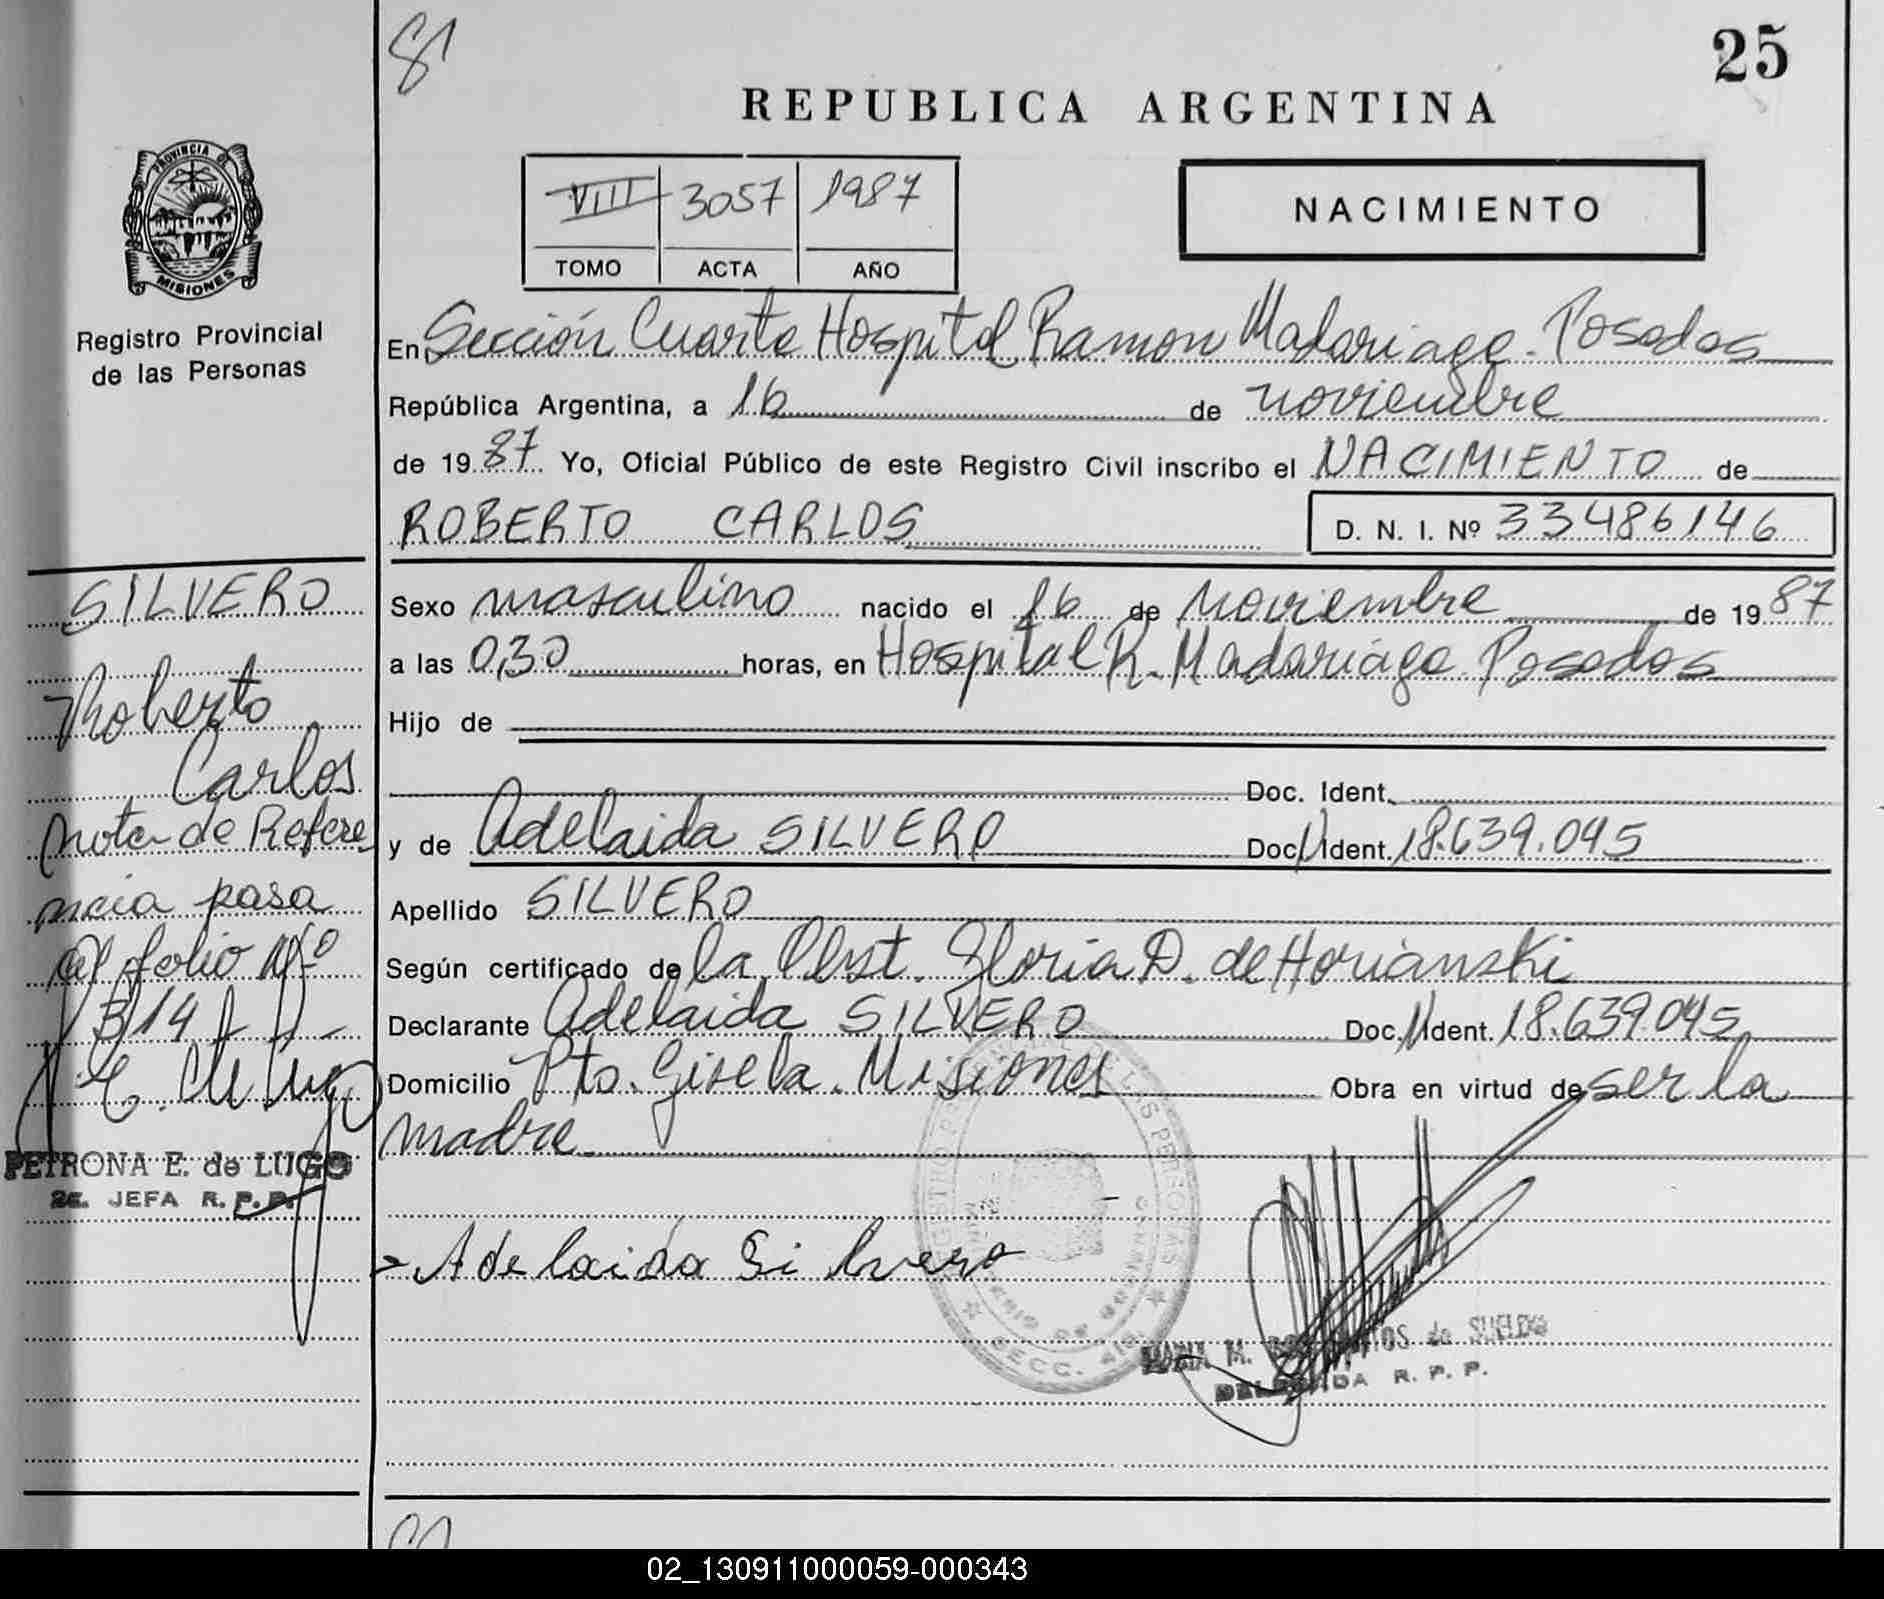 81
25
REPUBLICA ARGENTINA
VIII 3057 1987
TOMO ACTA AÑO
NACIMIENTO
PROVINCIA DE
MISIONES
Registro Provincial
de las Personas
En Sección Cuarta Hospital Ramon Madariaga. Posadas
República Argentina, a 16 de noviembre
de 1987 Yo, Oficial Público de este Registro Civil inscribo el NACIMIENTO de
ROBERTO CARLOS
D. N. I. Nº 33486146
Sexo masculino nacido el 16 de Noviembre de 1987
a las 0,30 horas, en Hospital R. Madariaga Posadas
Hijo de
Doc. Ident.
y de Adelaida SILVERO Doc. Ident. 18.639.045
Apellido SILVERO
Según certificado de la Obst. Gloria D. de Horianski
Declarante Adelaida SILVERO Doc. Ident. 18.639.045
Domicilio Pto. Gisela. Misiones Obra en virtud de ser la
madre
Adelaida Silvero
SECC.
de SUELDO
R. P. P.
SILVERO
Roberto
Carlos
Nota de Refere
ncia pasa
al folio Nº
314
PETRONA E. de LUGO
2a. JEFA R. P. P.
02_130911000059-000343